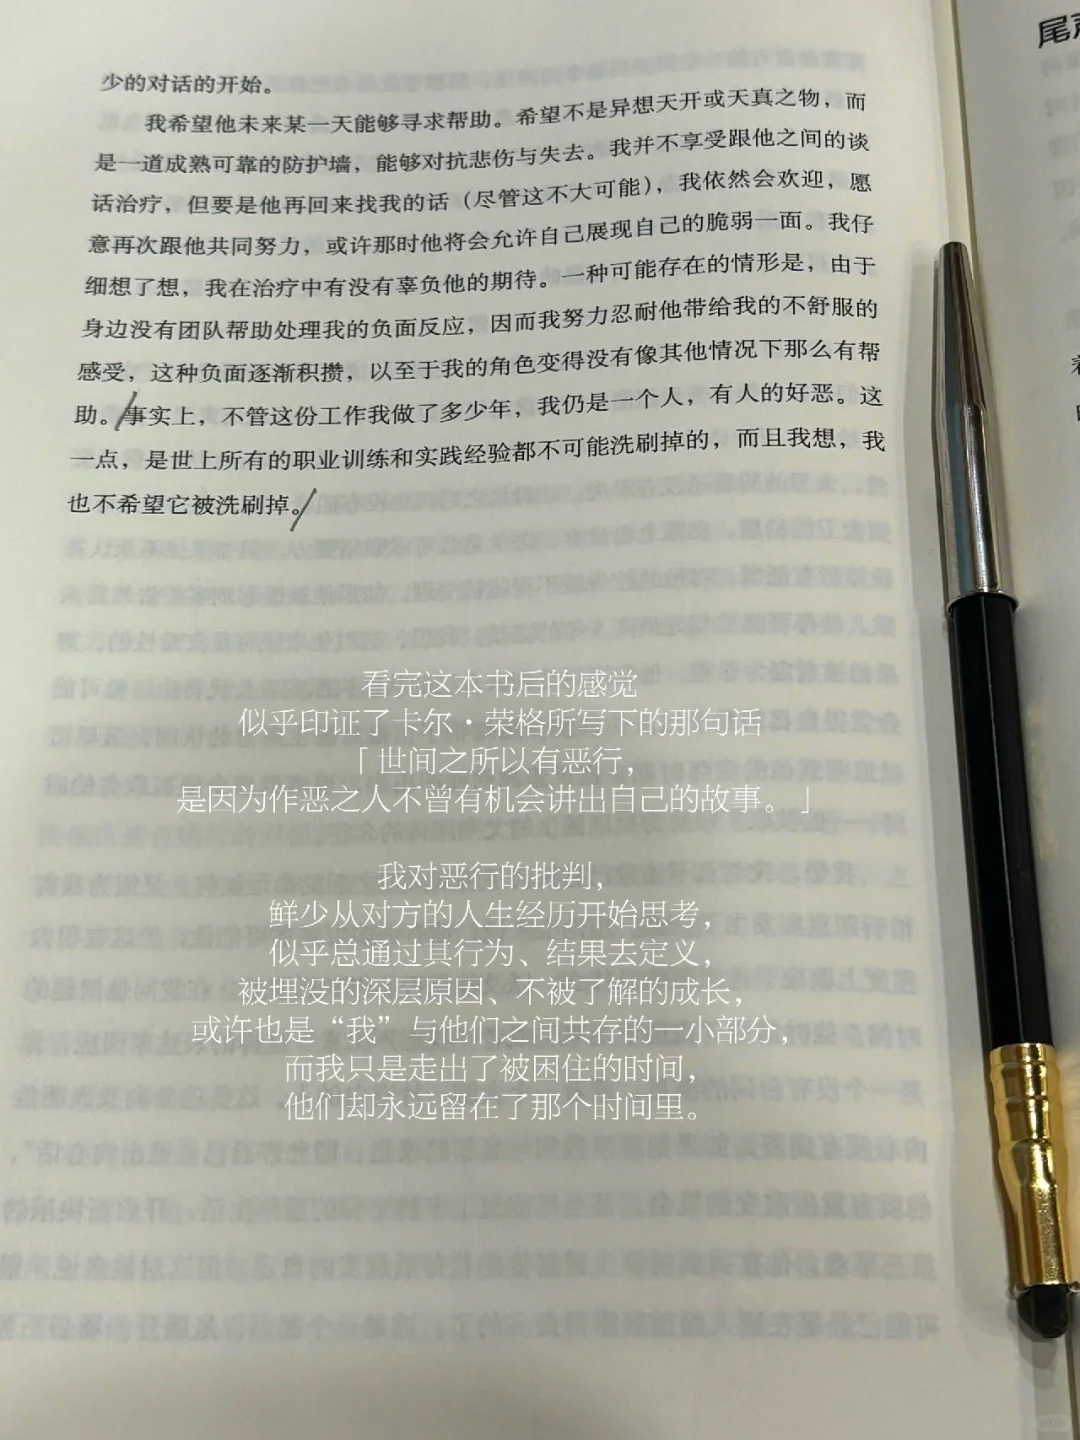 少的对话的开始。
我希望他未来某一天能够寻求帮助。希望不是异想天开或天真之物，而
是一道成熟可靠的防护墙，能够对抗悲伤与失去。我并不享受跟他之间的谈
话治疗，但要是他再回来找我的话（尽管这不大可能），我依然会欢迎，愿
意再次跟他共同努力，或许那时他将会允许自己展现自己的脆弱一面。我仔
细想了想，我在治疗中有没有辜负他的期待。一种可能存在的情形是，由于
身边没有团队帮助处理我的负面反应，因而我努力忍耐他带给我的不舒服的
感受，这种负面逐渐积攒，以至于我的角色变得没有像其他情况下那么有帮
助。事实上，不管这份工作我做了多少年，我仍是一个人，有人的好恶。这
一点，是世上所有的职业训练和实践经验都不可能洗刷掉的，而且我想，我
也不希望它被洗刷掉。
尾
看完这本书后的感觉
似乎印证了卡尔·荣格所写下的那句话
「世间之所以有恶行，
是因为作恶之人不曾有机会讲出自己的故事。」
我对恶行的批判，
鲜少从对方的人生经历开始思考，
似乎总通过其行为、结果去定义，
被埋没的深层原因、不被了解的成长，
或许也是“我”与他们之间共存的一小部分，
而我只是走出了被困住的时间，
他们却永远留在了那个时间里。